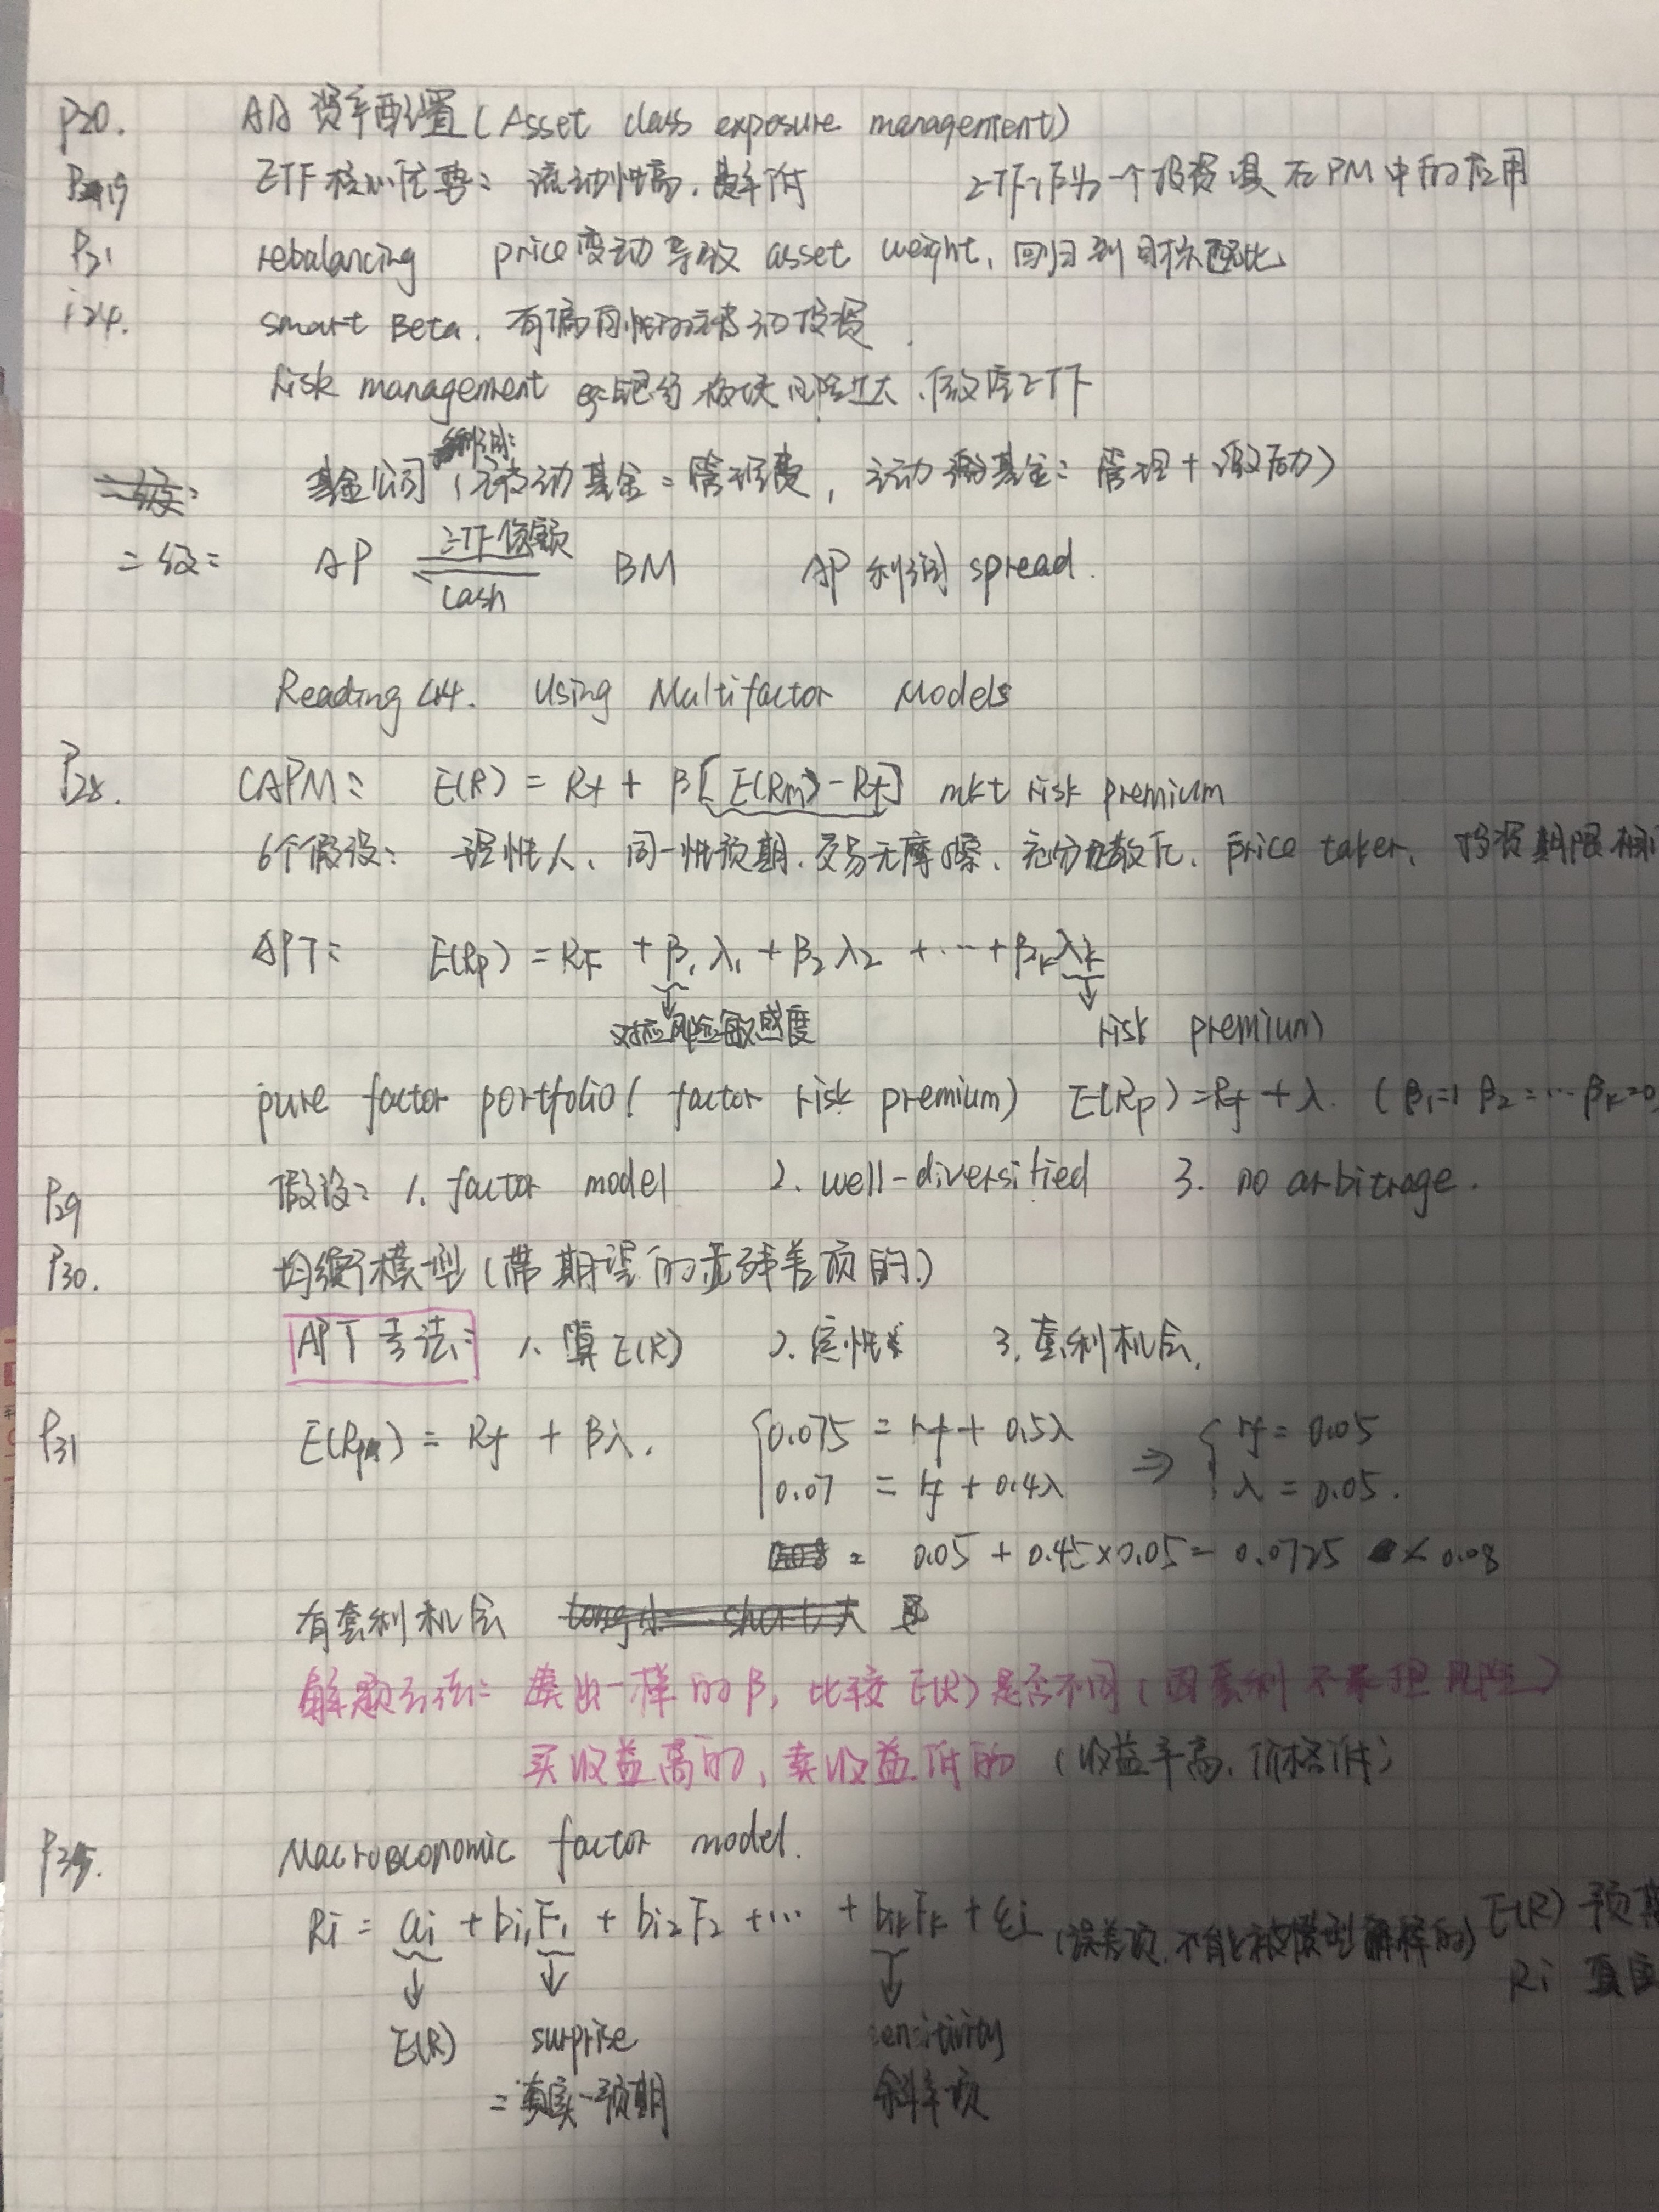 P20. AA 资产配置 (Asset class exposure management)
P19 ETF核心优势: 流动性高, 费率低 ETF作为一个投资工具在PM中的应用
P21 rebalancing price变动导致 asset weight, 回归到目标配比
P24. smart Beta. 有偏向性的被动投资.
risk management eg: 板块风险过大, 做空ETF
基金公司 (被动基金: 管理费, 主动基金: 管理+激励)
二级: AP ETF份额 cash BM AP 利润 spread.
Reading 44. Using Multifactor Models
P28. CAPM: E(R) = Rf + β[E(Rm) - Rf] mkt risk premium
6个假设: 理性人、同一性预期、交易无摩擦、充分分散化、price taker、投资期限相
APT: E(Rp) = RF + β₁λ₁ + β₂λ₂ + ... + βkλk
对应风险敏感度 risk premium
pure factor portfolio (factor risk premium) E(Rp) = Rf + λ. (β₁=1 β₂=...βk=0
P29 假设: 1. factor model 2. well-diversified 3. no arbitrage.
P30. 均衡模型 (带期望的无残差项的)
APT考法: 1. 算E(R) 2. 定性 3. 套利机会.
P31 E(Rp) = Rf + βλ. {0.075 = rf + 0.5λ ⇒ {rf = 0.05
0.07 = rf + 0.4λ λ = 0.05.
= 0.05 + 0.45×0.05 = 0.0725 < 0.08
有套利机会
解题方法: 凑出一样的β, 比较E(R)是否不同 (因套利不承担风险)
买收益高的, 卖收益低的 (收益率高, 价格低)
P35. Macroeconomic factor model.
Ri = ai + bi₁F₁ + bi₂F₂ + ... + bikFk + εi (误差项, 不能被模型解释的) E(R) 预期
Ri 真实
E(R) surprise sensitivity
= 真实-预期 斜率项